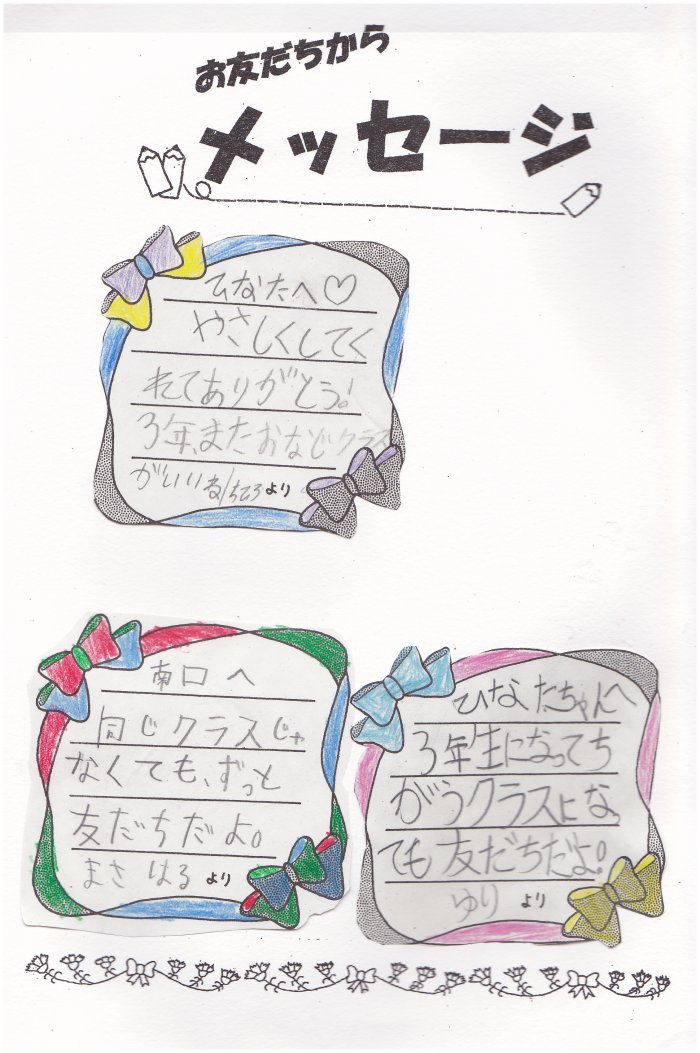 お友だちから
メッセージ
ひなたへ♡
やさしくしてく
れてありがとう!
3年、またおなじクラス
がいいね/ちころより
南口へ
同じクラスじゃ
なくても、ずっと
友だちだよ。
まさはるより
ひなたちゃんへ
3年生になってち
がうクラスになっ
ても友だちだよ!
ゆりより